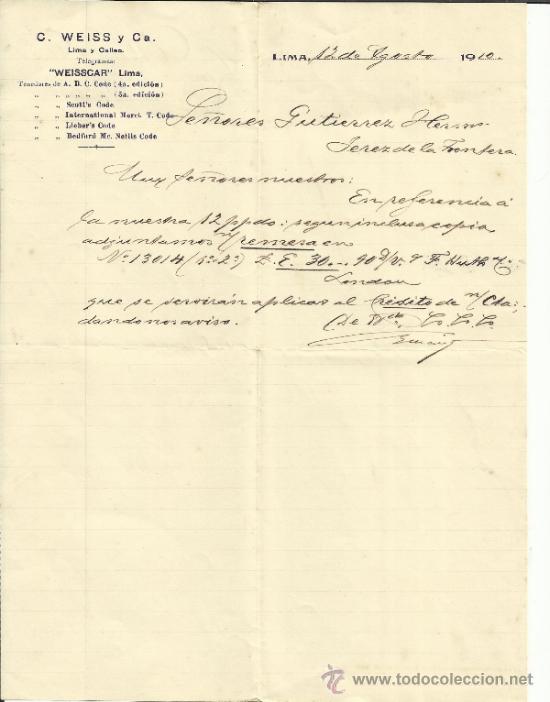 C. WEISS y Ca.
Lima y Callao.
Telegramas:
"WEISSCAR" Lima,
de A. B. C. Code (4a. edición)
„ „ „ „ „ (5a. edición)
„ „ Scott's Code
„ „ International Merct T. Code
„ „ Lieber's Code
„ „ Bedford Mc. Neills Code
LIMA, 12 de Agosto 1910.
Señores Gutierrez Hermos
Jerez de la Frontera
Muy señores nuestros:
En referencia á
la nuestra 12 ppdo: segun inclusa copia
adjuntamos n/ remesa en
No. 13014/(1a-2a) £. E. 30.-. 90 d/v. F. Huth
London
que se servirán aplicar al Crédito de n/ Cta;
dandonos aviso.
todocoleccion
http://todocoleccion.net